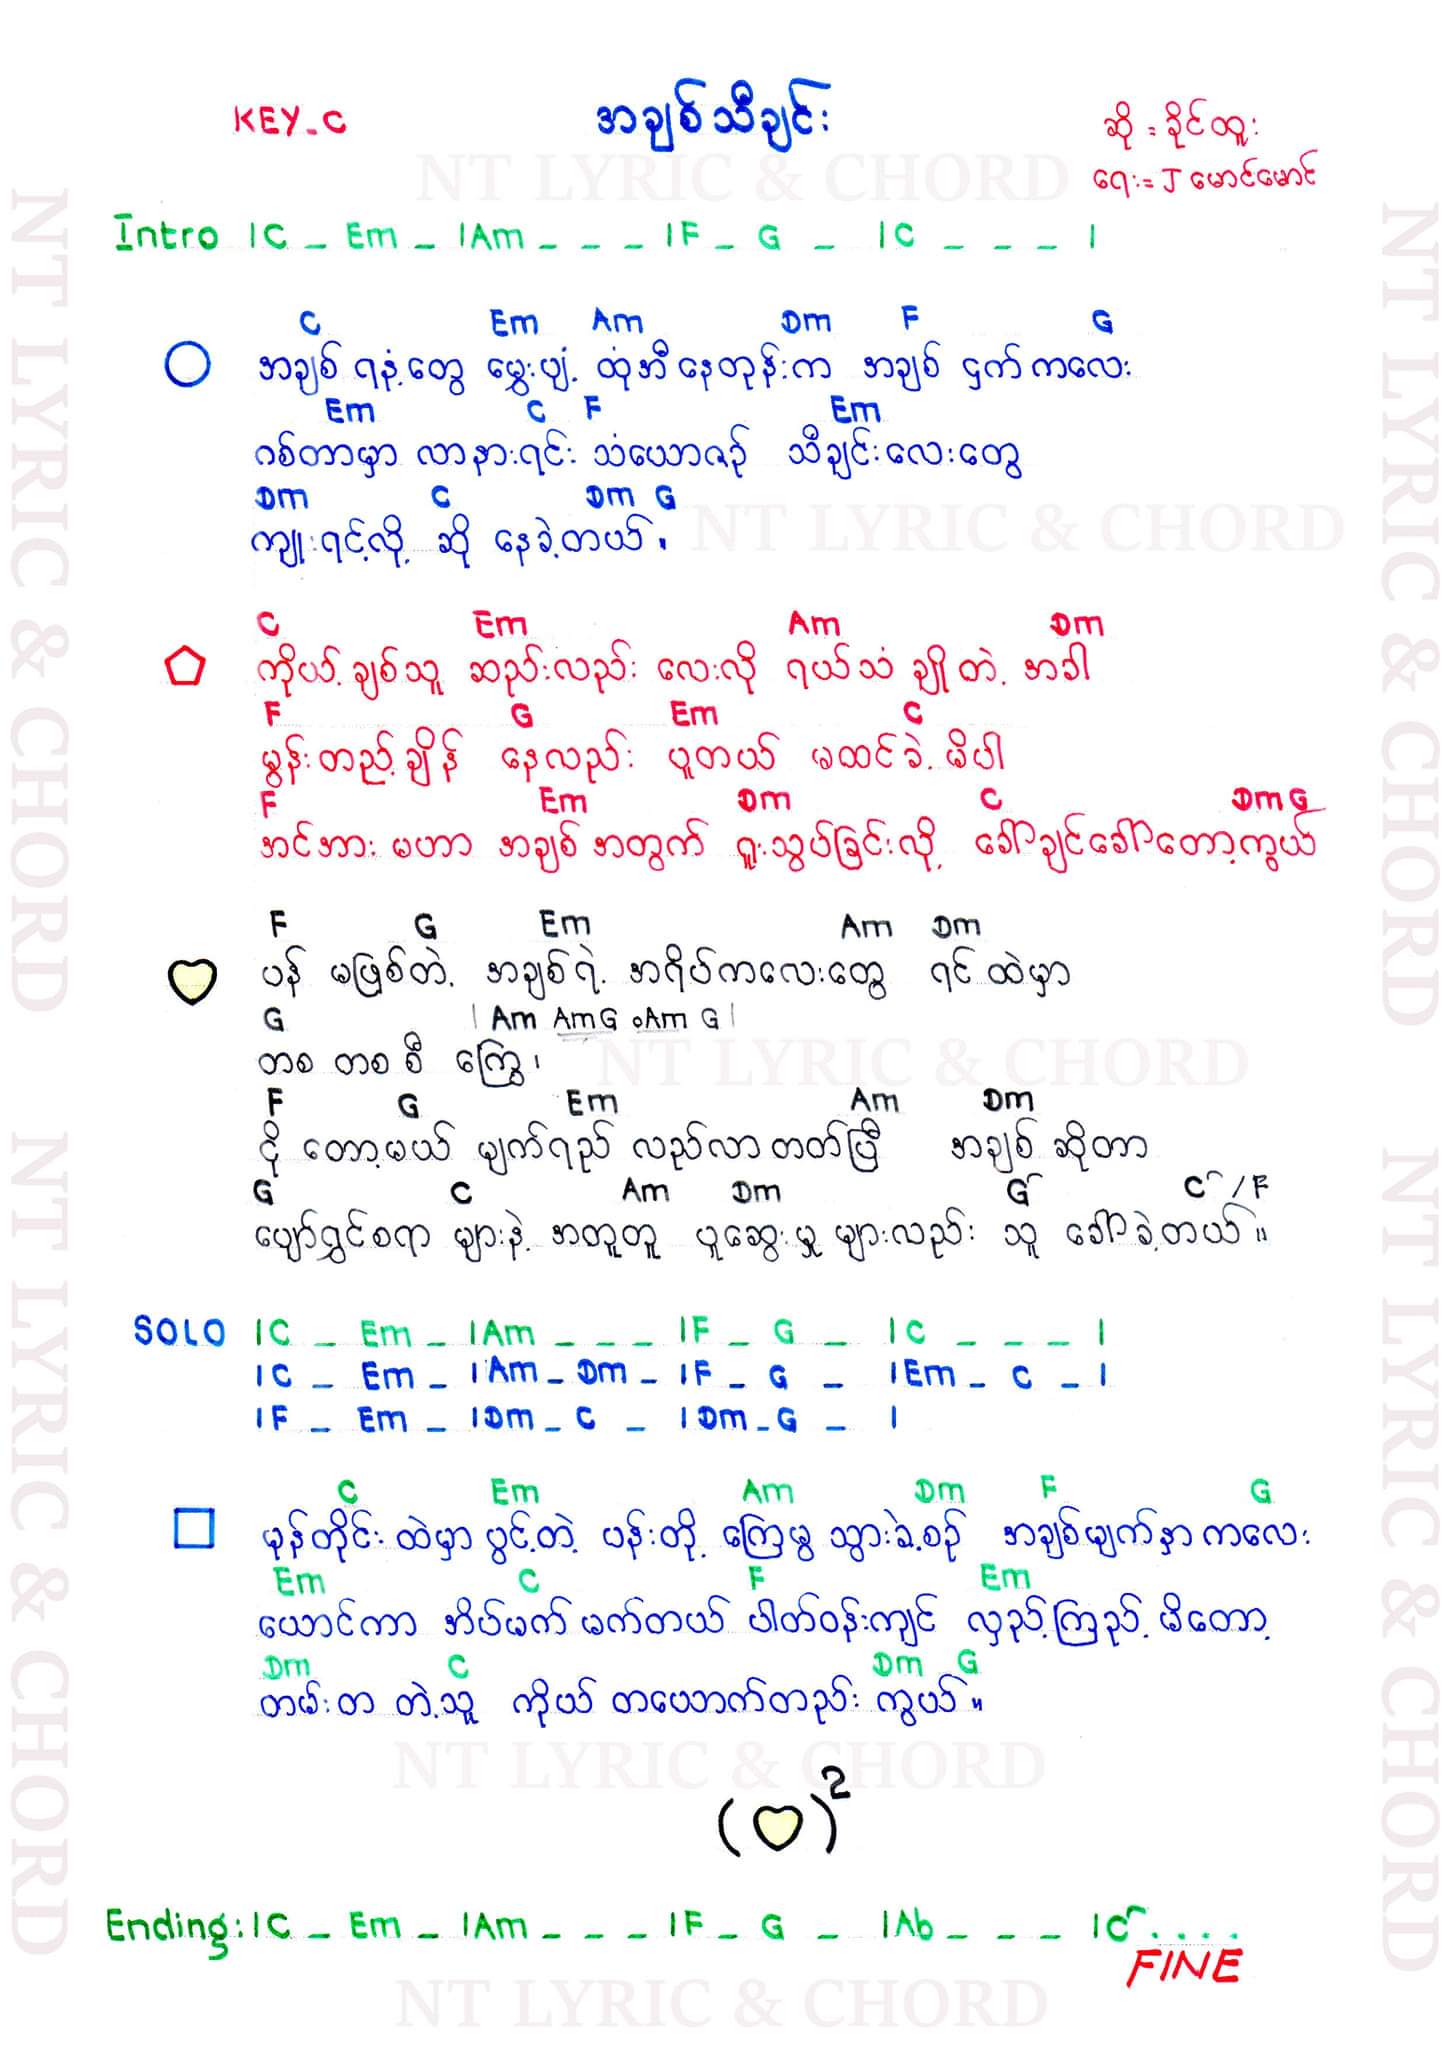 KEY_C
အချစ်သီချင်း
ဆို = ခိုင်ထူး
ရေး = J မောင်မောင်
NT LYRIC & CHORD
Intro |C _ Em _ |Am _ _ _ |F _ G _ |C _ _ _ |
C Em Am Dm F G
အချစ် ရနံ့တွေ မွှေးပျံ့ ထုံအီ နေတုန်းက အချစ် ငှက်ကလေး
Em C F Em
ဂစ်တာမှာ လာနားရင်း သံယောဇဉ် သီချင်းလေးတွေ
Dm C Dm G
ကျူးရင့်လို့ ဆို နေခဲ့တယ်၊
NT LYRIC & CHORD
C Em Am Dm
ကိုယ့် ချစ်သူ ဆည်းလည်း လေးလို ရယ်သံ ချိုတဲ့ အခါ
F G Em C
မွန်းတည့်ချိန် နေလည်း ပူတယ် မထင်ခဲ့ မိပါ
F Em Dm C Dm G
အင်အား မဟာ အချစ် အတွက် ရူးသွပ်ခြင်းလို့ ခေါ်ချင်ခေါ်တော့ကွယ်
F G Em Am Dm
ပန် မဖြစ်တဲ့ အချစ်ရဲ့ အရိပ်ကလေးတွေ ရင်ထဲမှာ
G | Am Am G Am G |
တစ တစ စီ ကြွေ၊
NT LYRIC & CHORD
F G Em Am Dm
ငို တော့မယ် မျက်ရည် လည်လာတတ်ပြီ အချစ် ဆိုတာ
G C Am Dm G C / F
ပျော်ရွှင်စရာ များနဲ့ အတူတူ ပူဆွေးမှု များလည်း သူ ခေါ်ခဲ့တယ်။
SOLO |C _ Em _ |Am _ _ _ |F _ G _ |C _ _ _ |
|C _ Em _ |Am _ Dm _ |F _ G _ |Em _ C _ |
|F _ Em _ |Dm _ C _ |Dm _ G _ |
C Em Am Dm F G
မုန်တိုင်း ထဲမှာ ပွင့်တဲ့ ပန်းတို့ ကြေမွ သွားခဲ့စဉ် အချစ်မျက်နှာ ကလေး
Em C F Em
ယောင်ကာ အိပ်မက် မက်တယ် ပါတ်ဝန်းကျင် လှည့်ကြည့် မိတော့
Dm C Dm G
တမ်းတ တဲ့သူ ကိုယ် တယောက်တည်း ကွယ်။
NT LYRIC & CHORD
( )2
Ending: |C _ Em _ |Am _ _ _ |F _ G _ |Ab _ _ _ |C . . . .
FINE
NT LYRIC & CHORD
NT LYRIC & CHORD
NT LYRIC & CHORD
NT LYRIC & CHORD
NT LYRIC & CHORD